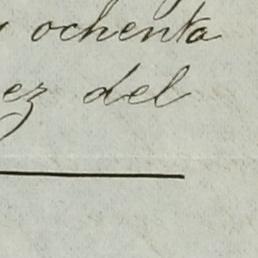 y ochenta
ez del